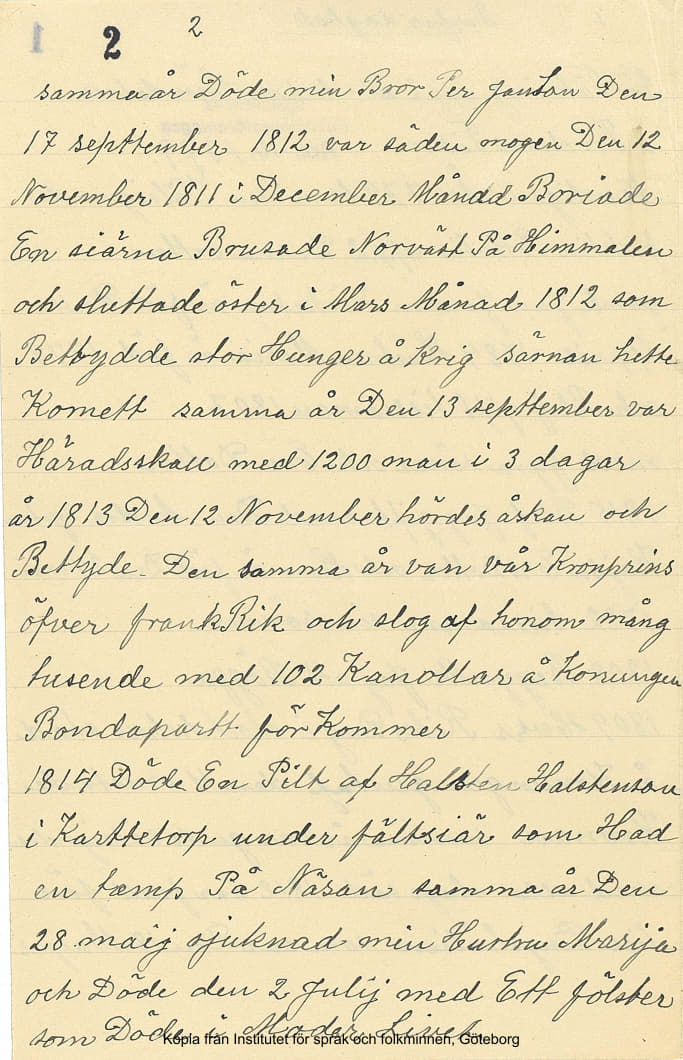 2
2
samma år Döde min Bror Per Janson Den
17 septtember 1812 var säden mogen Den 12
November 1811 i December Måndd Boriade
En siärna Brusade Norväst På Himmalen
och sluttade öster i Mars Månad 1812 som
Bettydde stor Hunger å Krig särnan hette
Komett samma år Den 13 septtember var
Häradsskall med 1200 man i 3 dagar
år 1813 Den 12 November hördes åskan och
Bettyde. Den samma år van vår Kronprins
öfver frankRik och slog af honom mång
tusende med 102 Kanollar å Konungen
Bondapartt för Kommer
1814 Döde En Pilt af Halsten Halstenson
i Karttetorp under fältsiär som Had
en tæmp På Näsan samma år Den
28 maig sjuknad min Hustru Marija
och Döde den 2 Julij med Ett fölster
som Döde i Moder Livet
Kopia från Institutet för språk och folkminnen, Göteborg